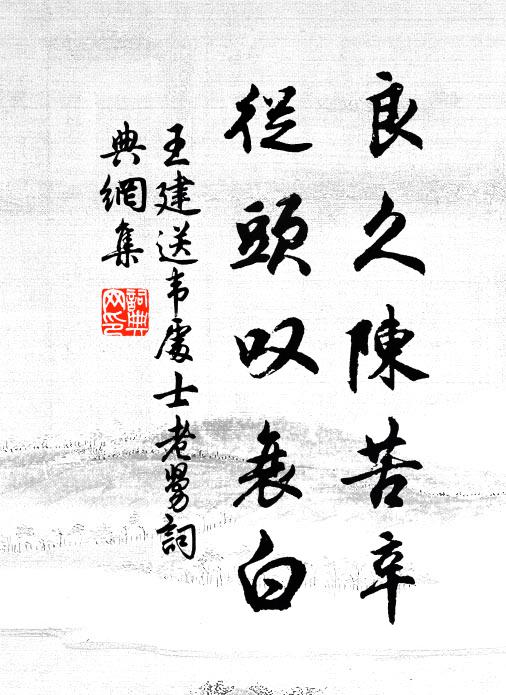 良久陳苦辛
從頭叹衰白
王建送韦處士老舅詞
典網集
詞典
网印